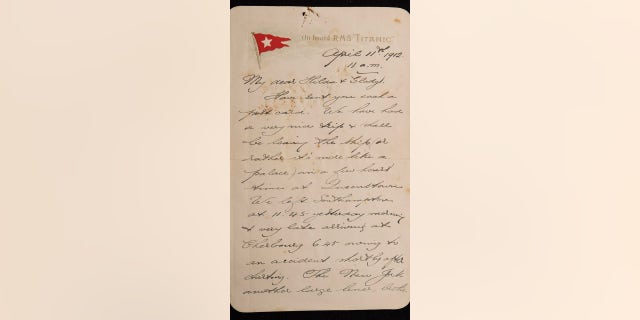 On board R.M.S. "TITANIC"
April 11th 1912.
11 a.m.
My dear Hilda &
Have sent you each a
post card. We have had
a very nice trip & shall
be leaving the ship (or
rather it's more like a
palace) in a few hours
time at Queenstown
We left Southampton
at 11.45 yesterday morning
& very late arriving at
Cherbourg 6.45 owing to
an accident shortly after
starting. The New York
another large liner,